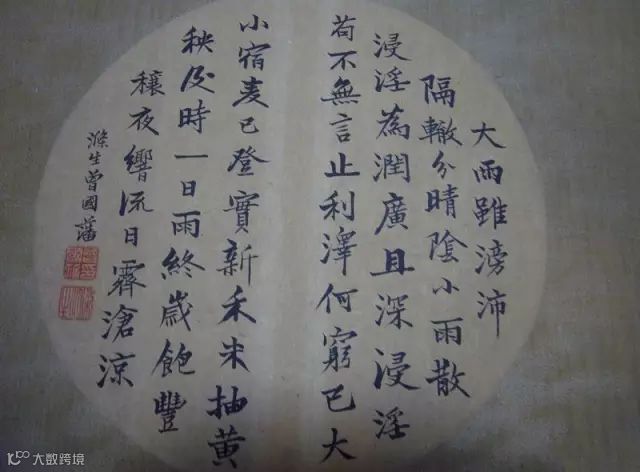 大雨雖滂沛
隔轍分晴陰小雨散
浸淫為潤廣且深浸淫
苟不無言止利澤何窮已大
小宿麦已登實新禾未抽黄
秧及時一日雨終歲飽豐
穰夜響流日霽滄涼
滌生曾國藩
大数跨境